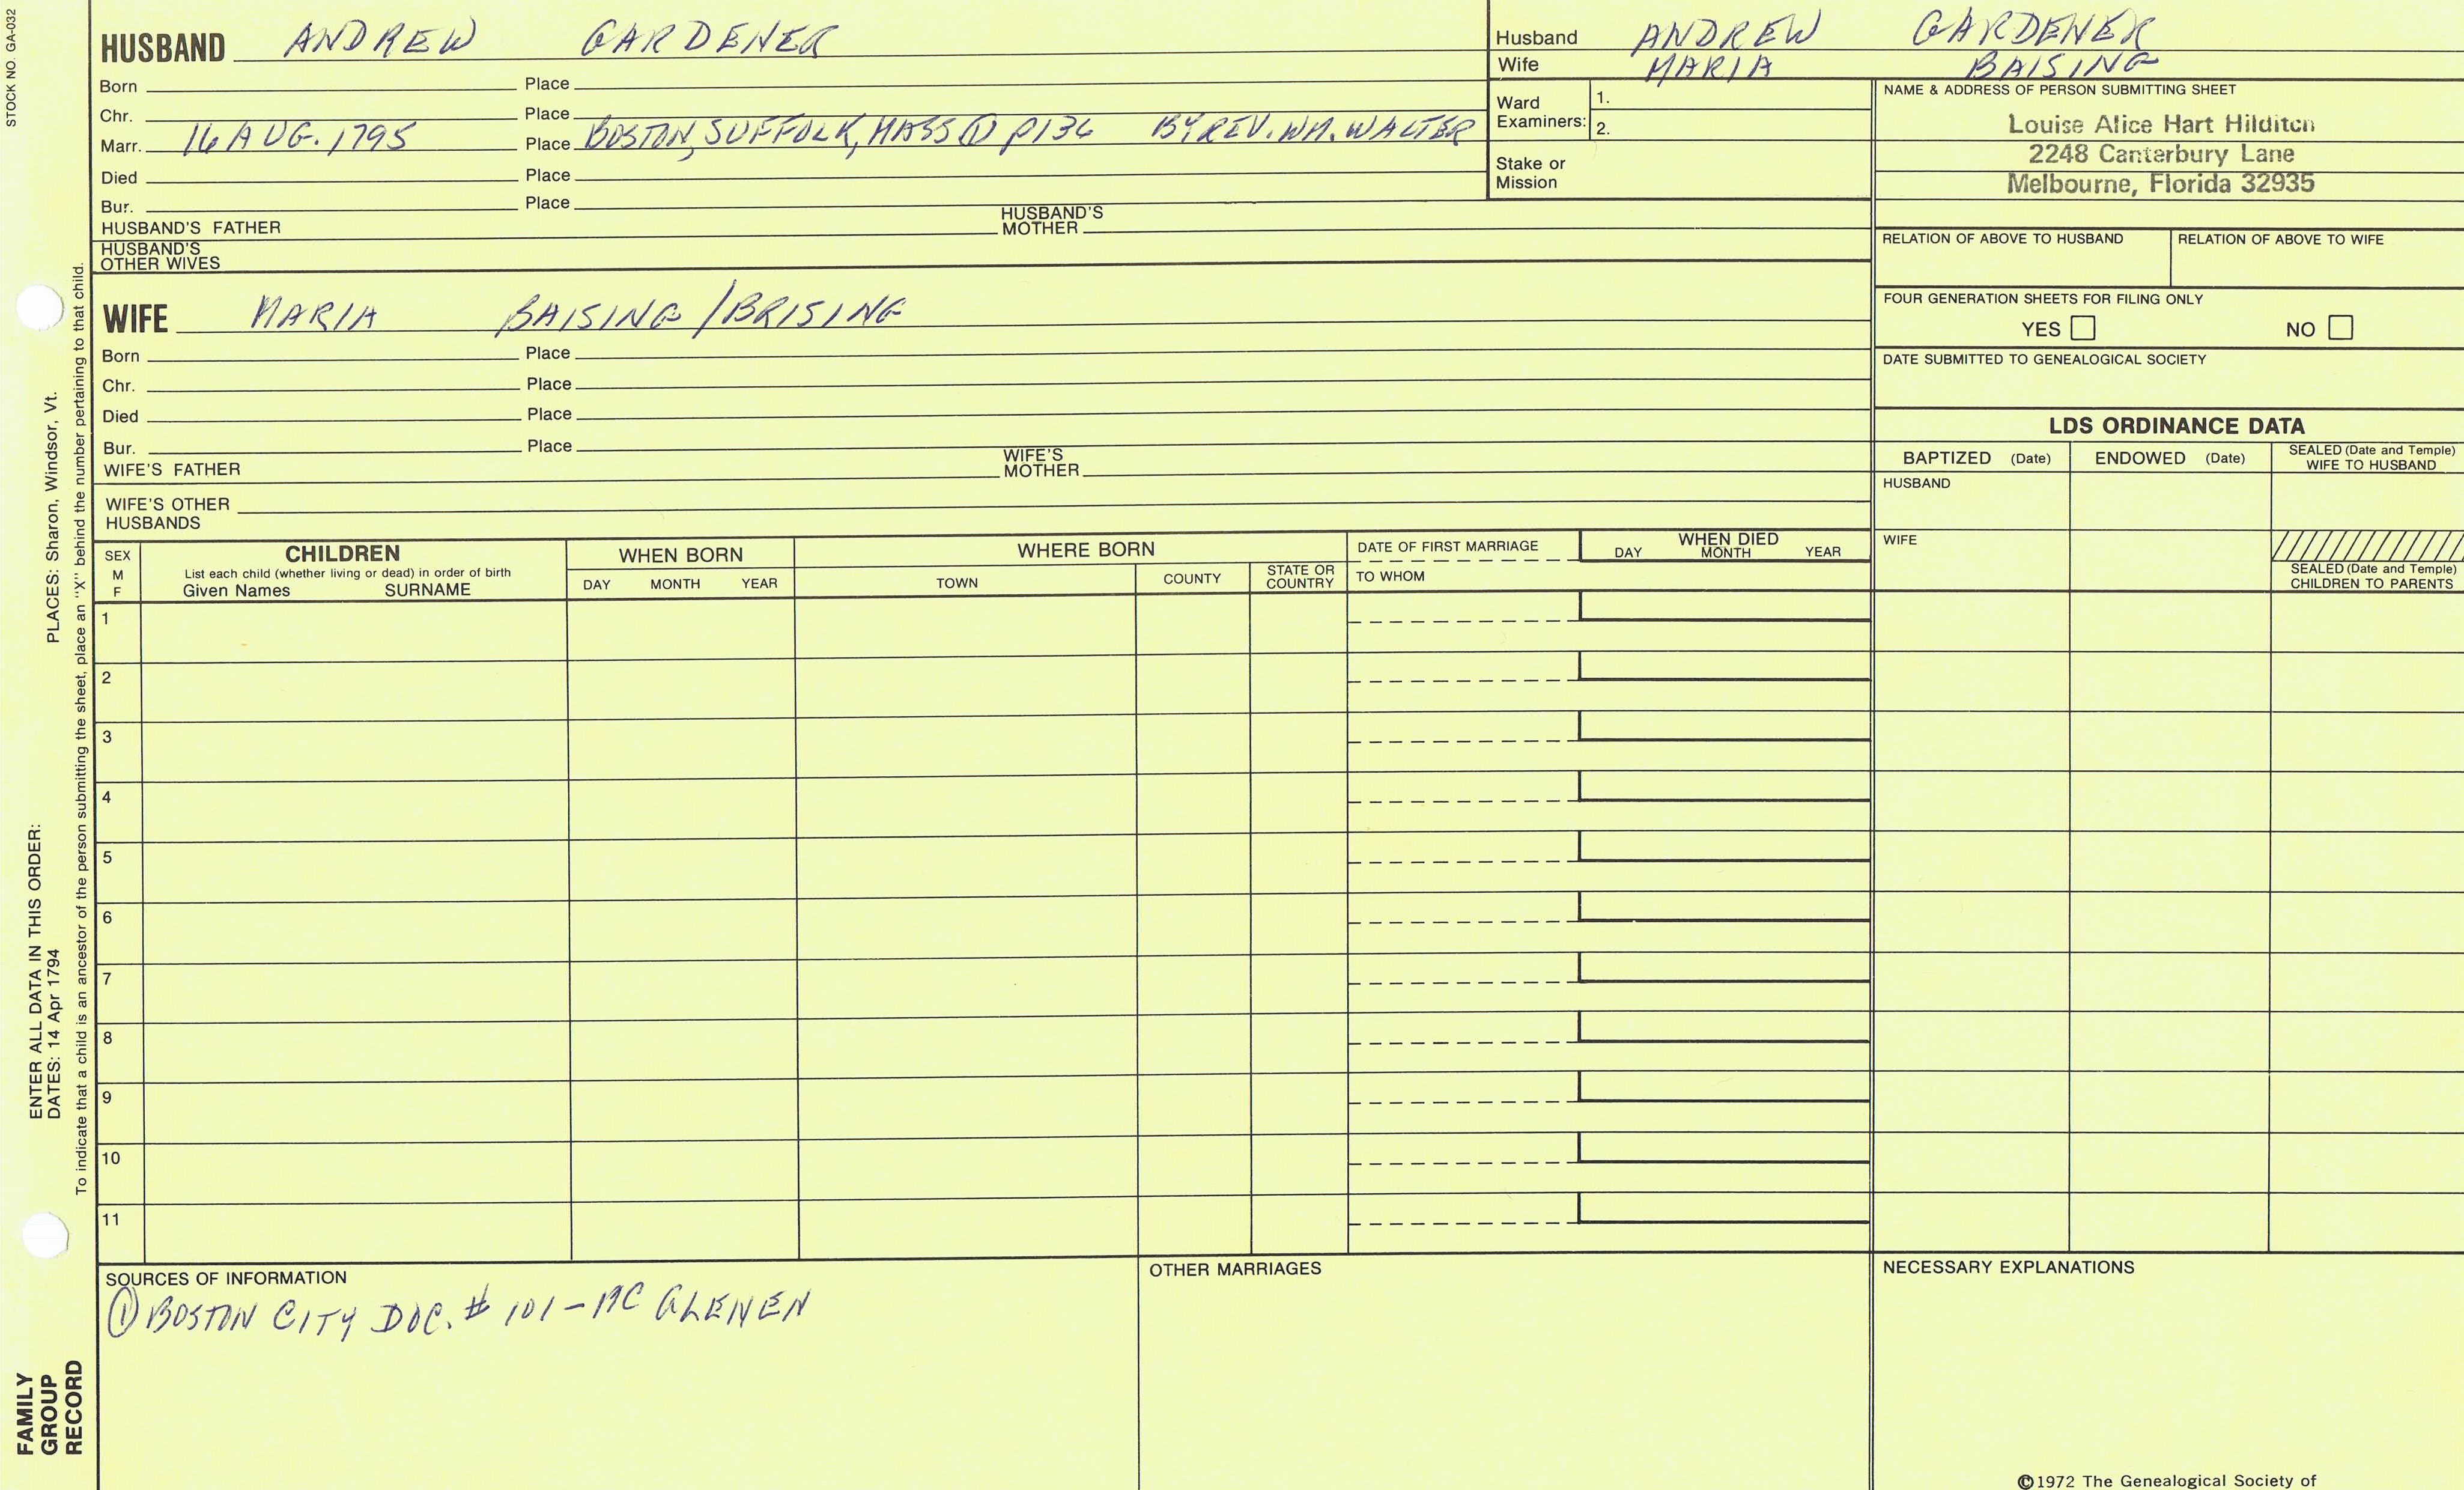 STOCK NO. GA-032
HUSBAND ANDREW GARDENER
Born Place
Chr. Place
Marr. 16 AUG. 1795 Place BOSTON, SUFFOLK, MASS ① p136 BY REV. WM. WALTER
Died Place
Bur. Place
HUSBAND'S FATHER HUSBAND'S MOTHER
HUSBAND'S OTHER WIVES
Husband ANDREW GARDENER
Wife MARIA BAISING
Ward Examiners: 1.
2.
Stake or Mission
NAME & ADDRESS OF PERSON SUBMITTING SHEET
Louise Alice Hart Hilditch
2248 Canterbury Lane
Melbourne, Florida 32935
RELATION OF ABOVE TO HUSBAND RELATION OF ABOVE TO WIFE
FOUR GENERATION SHEETS FOR FILING ONLY
YES NO
DATE SUBMITTED TO GENEALOGICAL SOCIETY
WIFE MARIA BAISING / BRISING
Born Place
Chr. Place
Died Place
Bur. Place
WIFE'S FATHER WIFE'S MOTHER
WIFE'S OTHER HUSBANDS
LDS ORDINANCE DATA
BAPTIZED (Date) ENDOWED (Date) SEALED (Date and Temple) WIFE TO HUSBAND
HUSBAND
WIFE
SEALED (Date and Temple) CHILDREN TO PARENTS
SEX M F
CHILDREN
List each child (whether living or dead) in order of birth
Given Names SURNAME
WHEN BORN
DAY MONTH YEAR
WHERE BORN
TOWN COUNTY STATE OR COUNTRY
DATE OF FIRST MARRIAGE
TO WHOM
WHEN DIED
DAY MONTH YEAR
1
2
3
4
5
6
7
8
9
10
11
SOURCES OF INFORMATION
① BOSTON CITY DOC. # 101 - MC GLENEN
OTHER MARRIAGES
NECESSARY EXPLANATIONS
©1972 The Genealogical Society of
PLACES: Sharon, Windsor, Vt.
ENTER ALL DATA IN THIS ORDER:
DATES: 14 Apr 1794
To indicate that a child is an ancestor of the person submitting the sheet, place an "X" behind the number pertaining to that child.
FAMILY
GROUP
RECORD